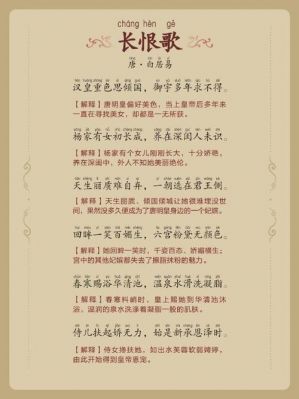 cháng hèn gē
长恨歌
唐·白居易
汉皇重色思倾国，御宇多年求不得。
【解释】唐明皇偏好美色，当上皇帝后多年来
一直在寻找美女，却都是一无所获。
杨家有女初长成，养在深闺人未识。
【解释】杨家有个女儿刚刚长大，十分娇艳，
养在深闺中，外人不知她美丽绝伦。
天生丽质难自弃，一朝选在君王侧。
【解释】天生丽质、倾国倾城让她很难埋没世
间，果然没多久便成为了唐明皇身边的一个妃嫔。
回眸一笑百媚生，六宫粉黛无颜色。
【解释】她回眸一笑时，千姿百态、娇媚横生；
宫中的其他妃嫔都失去了擦脂抹粉的魅力。
春寒赐浴华清池，温泉水滑洗凝脂。
【解释】春寒料峭时，皇上赐她到华清池沐
浴，温润的泉水洗涤着凝脂一般的肌肤。
侍儿扶起娇无力，始是新承恩泽时。
【解释】侍女搀扶她，如出水芙蓉软弱娉婷，
由此开始得到皇帝恩宠。